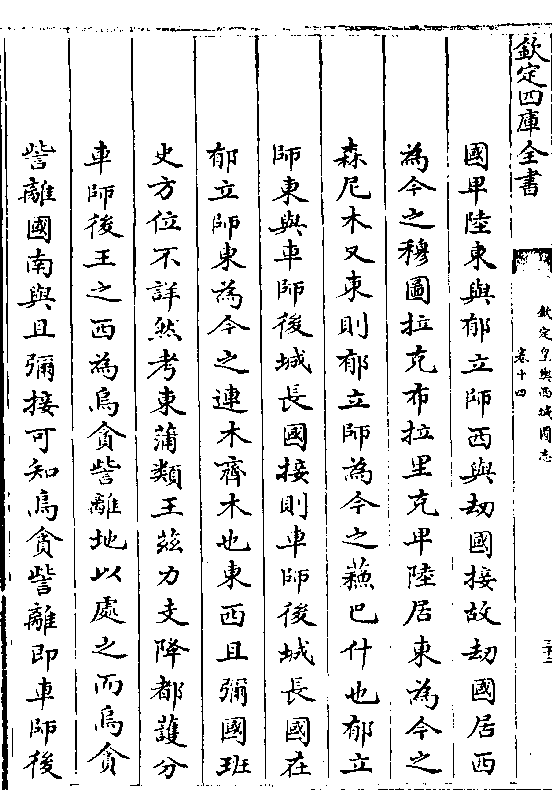 欽定四庫全書
欽定皇輿西域圖志
卷十四
國卑陸東與郁立師西與刼國接故刼國居西
為今之穆圖拉克布拉里克卑陸居東為今之
森尼木又東則郁立師為今之蘓巴什也郁立
師東與車師後城長國接則車師後城長國在
郁立師東為今之連木齊木也東西且彌國班
史方位不詳然考東蒲類王兹力支降都護分
車師後王之西為烏貪訾離地以處之而烏貪
訾離國南與且彌接可知烏貪訾離即車師後